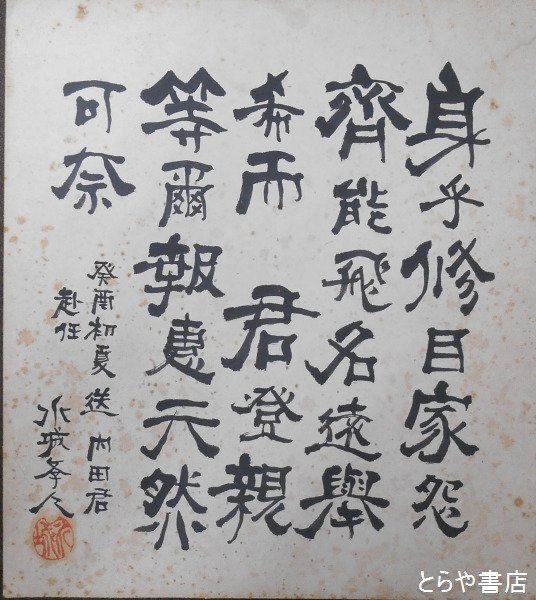 身乎修目家怨
齊能飛名遠舉
希而 君登親
等爾報惠天然
可奈
癸酉初夏 送 内田君
赴任
水城 人
とらや書店